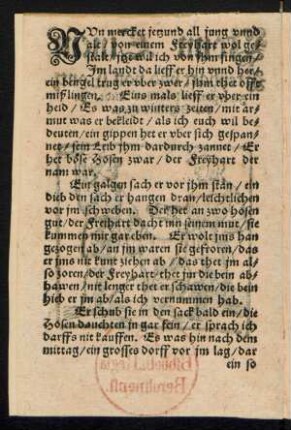 NUn mercket jetzund all jung vnnd
alt / von einem Freyhart wol ge-
stalt / jtzt wil ich von jhm singen /
Im landt da lieff er hin vnnd her /
ein bengel trug er vber zwer / jhm thet offt
mißlingen. Eins mals lieff er vber ein
heid / Es was zu winters zeiten / mit ar-
mut was er bekleidt / als ich euch wil be-
deuten / ein gippen het er vber sich gespan-
net / sein Leib jhm dardurch zannet / Er
het böse Hosen zwar / der Freyhart der
nam war.
Ein galgen sach er vor jhm stan / ein
dieb den sach er hangen dran / leichtlichen
vor jm schweben. Der het an zwo hosen
gut / der Freihart dacht inn seinem mut / sie
kummen mir gar eben. Er wolt jms han
gezogen ab / an jm waren sie gefroren / das
er jms nit kunt ziehen ab / das thet jm al-
so zoren / der Freyhart thet jm die bein ab-
hawen / nit lenger thet er schawen / die bein
hieb er jm ab / als ich vernummen hab.
Er schub sie in den sack bald ein / die
Hosen dauchten jn gar fein / er sprach ich
darffs nit kauffen. Es was hin nach dem
mittag / ein grosses dorff vor jm lag / dar
ein so